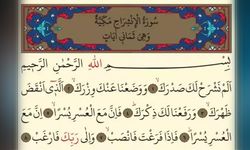 سُورَةُ الْاِنْشِرَاحِ مَكِّيَّةٌ
وَهِيَ ثَمَانِي اٰيَاتٍ
بِسْمِ اللّٰهِ الرَّحْمٰنِ الرَّحِيمِ
اَلَمْ نَشْرَحْ لَكَ صَدْرَكَۙ ﴿١﴾ وَوَضَعْنَا عَنْكَ وِزْرَكَۙ ﴿٢﴾ اَلَّذٖٓي اَنْقَضَ
ظَهْرَكَۙ ﴿٣﴾ وَرَفَعْنَا لَكَ ذِكْرَكَۜ ﴿٤﴾ فَاِنَّ مَعَ الْعُسْرِ يُسْرًاۙ ﴿٥﴾ اِنَّ مَعَ
الْعُسْرِ يُسْرًاۜ ﴿٦﴾ فَاِذَا فَرَغْتَ فَانْصَبْۙ ﴿٧﴾ وَاِلٰى رَبِّكَ فَارْغَبْ ﴿٨﴾